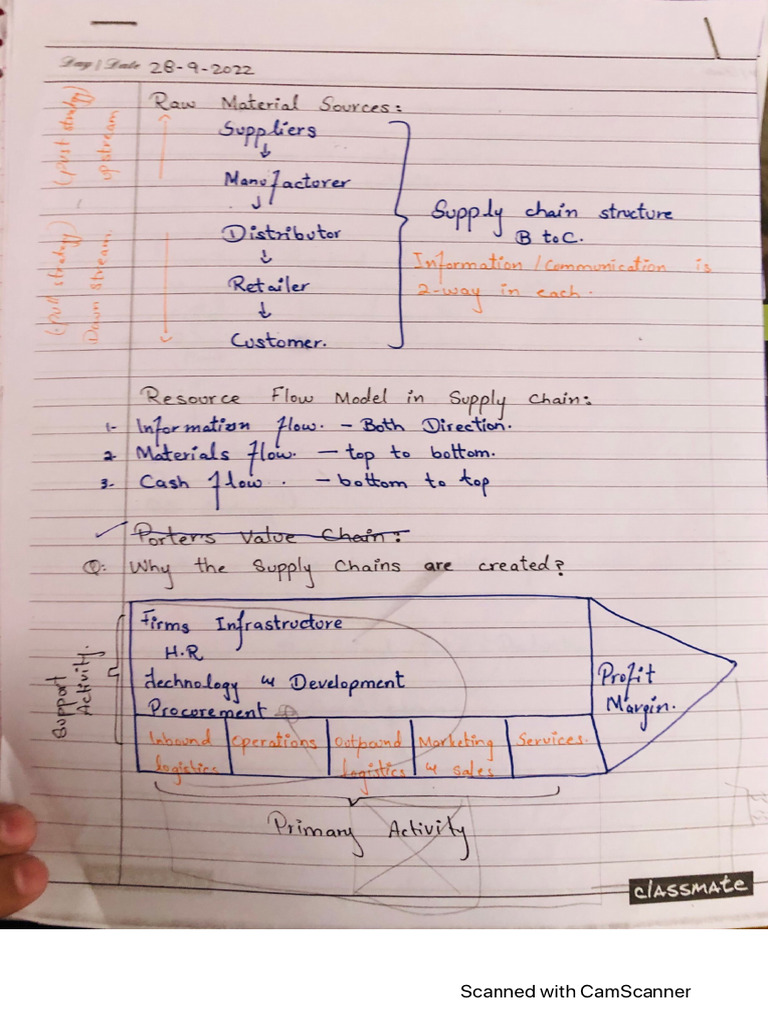 Day / Date 28-9-2022
Raw Material Sources:
Suppliers
↓
Manufactorer
↓
Distributor
↓
Retailer
↓
Customer.
upstream
(pull strategy)
Down stream.
Supply chain structure
B to C.
Information / Communication is
2-way in each.
Resource Flow Model in Supply Chain:
1- Information flow. - Both Direction.
2- Materials flow. - top to bottom.
3- Cash flow. - bottom to top
Porters Value Chain:
Q: Why the Supply Chains are created?
Support
Activity.
Firms Infrastructure
H.R
technology & Development
Procurement
Profit
Margin.
Inbound
logistics
Operations
Outbound
logistics
Marketing
& sales
Services.
Primary Activity
classmate
Scanned with CamScanner